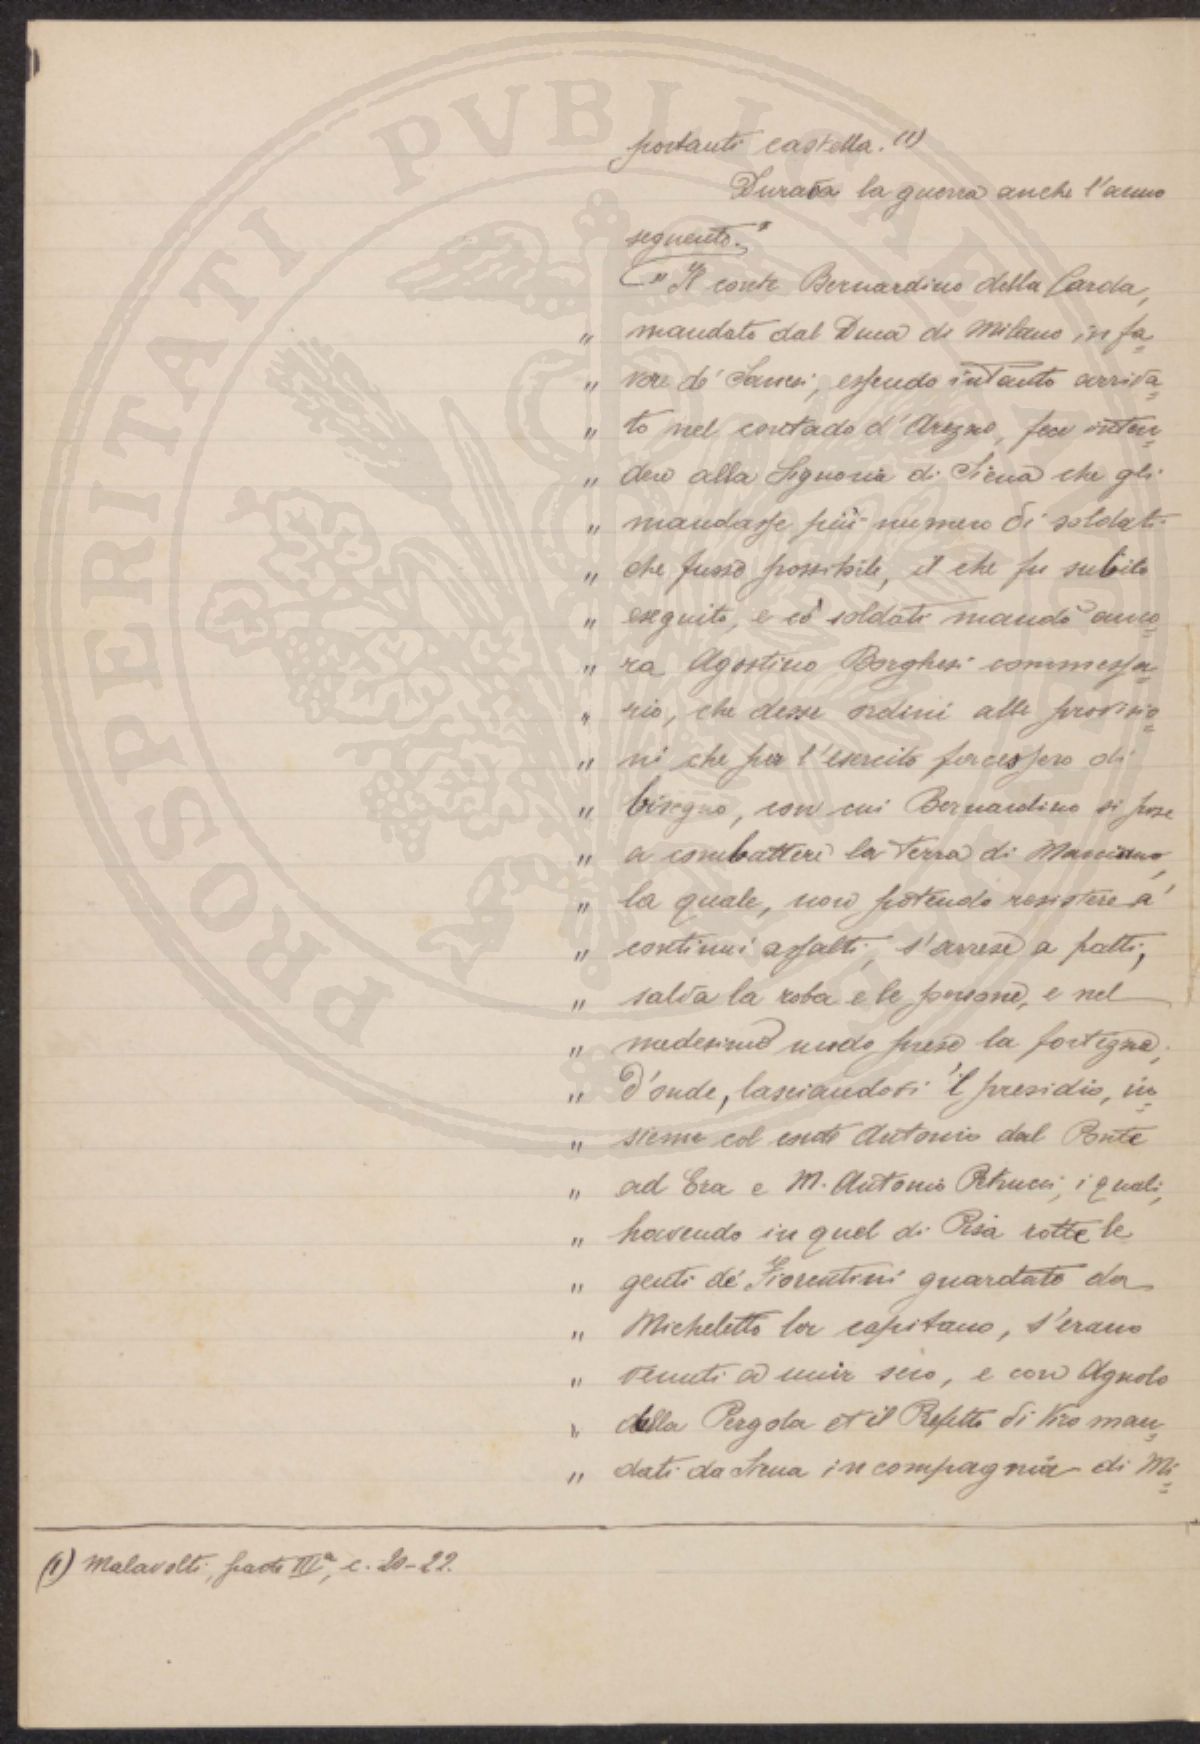 portanti castella. (1)
Durava la guerra anche l'anno
seguente."
" Il conte Bernardino della Carda,
" mandato dal Duca di Milano in fa=
" vore de' Sanesi, essendo intanto arriva=
" to nel contado d'Arezzo, fece inten=
" dere alla Signoria di Siena che gli
" mandasse più numero di soldati
" che fusse possibile, il che fu subito
" eseguito, e co' soldati mandò anco=
" ra Agostino Borghesi commessa=
" rio, che desse ordini alle provisio=
" ni che per l'esercito facessero di
" bisogno, con cui Bernardino si pose
" a combattere la Terra di Marciano,
" la quale, non potendo resistere a'
" continui assalti, s'arrese a patti,
" salva la roba e le persone, e nel
" medesimo modo prese la fortezza;
" d'onde, lasciandovi 'l presidio, in=
" sieme col conte Antonio dal Ponte
" ad Era e M. Antonio Petrucci, i quali,
" havendo in quel di Pisa rotte le
" genti de' Fiorentini guardate da
" Micheletto lor capitano, s'erano
" venuti a unir seco, e con Agnolo
" della Pergola et il Prefetto di Vico man=
" dati da Siena in compagnia di Mi=
(1) Malavolti, parte IIIª, c. 20-22.
PROSPERITATI PVBLICAE